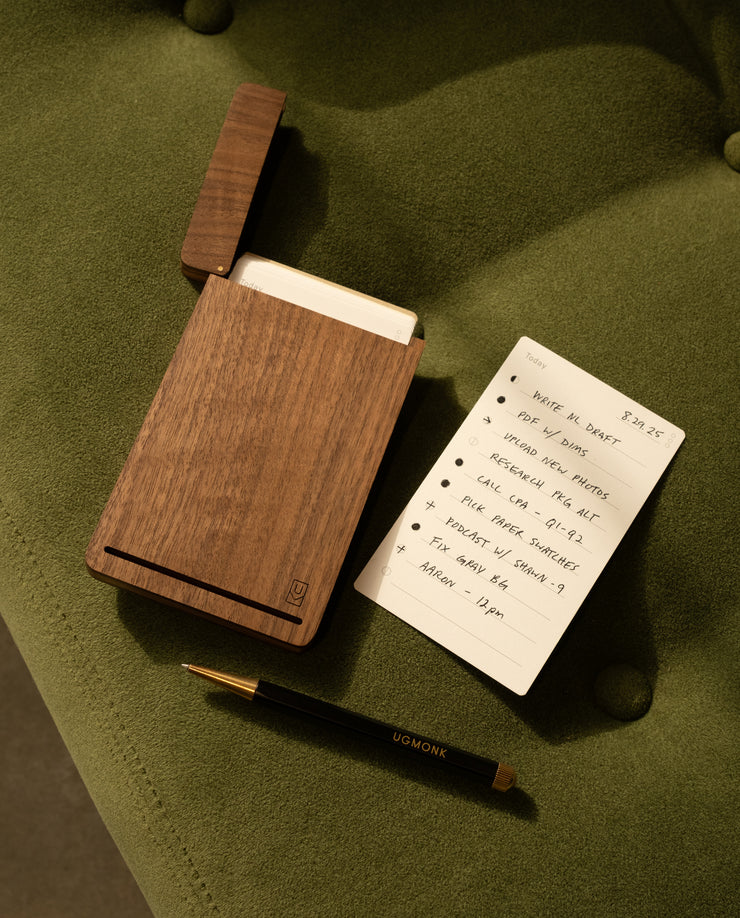 Today
Today
8.29.25
WRITE NL DRAFT
PDF W/ DIMS
UPLOAD NEW PHOTOS
RESEARCH PKG ALT
CALL CPA - Q1-Q2
PICK PAPER SWATCHES
PODCAST W/ SHAWN - 9
FIX GRAY BG
AARON - 12pm
UGMONK